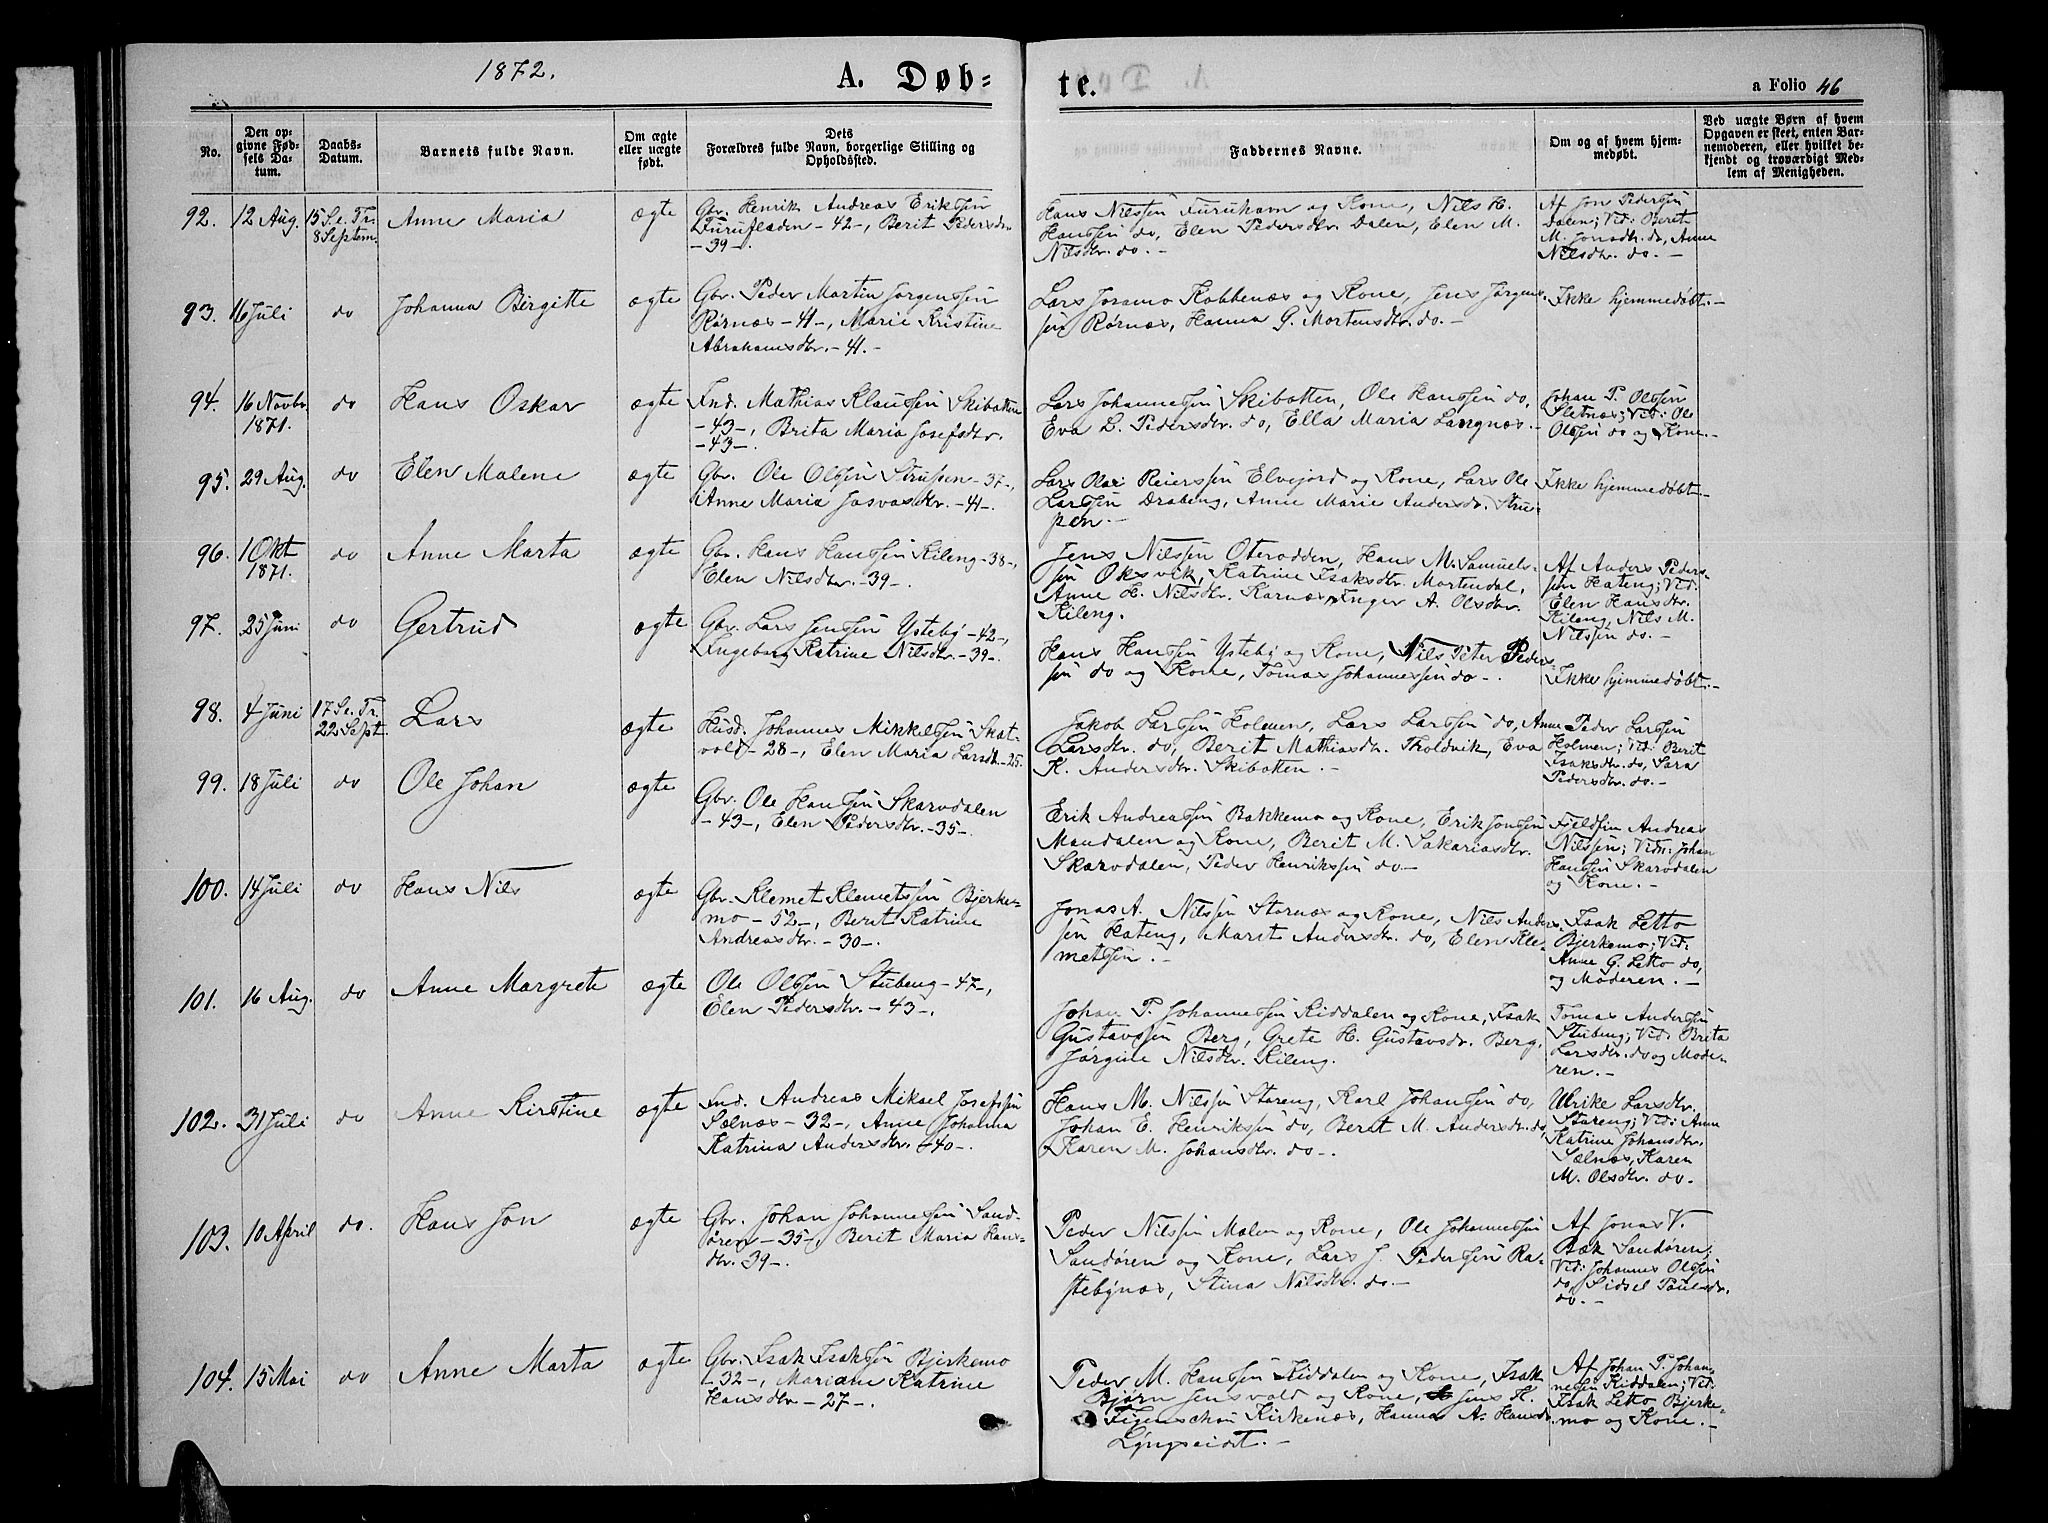 1872.
A. Døb-
te.
a Folio 46
No.
Den op-
givne Fød-
sels Da-
tum.
Daabs-
Datum.
Barnets fulde Navn.
Om ægte
eller uægte
født.
Dets
Forældres fulde Navn, borgerlige Stilling og
Opholdssted.
Faddernes Navne.
Om og af hvem hjem-
medøbt.
Ved uægte Børn af hvem
Opgaven er skeet, enten Bar-
nemoderen, eller hvilket be-
kjendt og troværdigt Med-
lem af Menigheden.
92.
12 Aug.
15 S. e. Tr.
8 Septem.
Anne Maria
ægte
Gbr. Henrik Andreas Eriksen
Furufladen - 42 -, Berit Pedersdr.
- 39 -.
Hans Nilssen Furuhavn og Kone, Nils H.
Hanssen do, Elen Pedersdtr. Dalen, Elen M.
Nilsdtr. do. -
Af Jon Pederssen
Dalen; Vid: Beret
M. Jonsdtr. do, Anne
Nilsdtr. do. -
93.
16 Juli
do
Johanna Birgitte
ægte
Gbr. Peder Martin Jørgenssen
Rørnæs - 41 -, Marie Kristine
Abrahamsdtr. - 41. -
Lars Joramo Kobbenæs og Kone, Jens Jørgens-
sen Rørnæs, Hanna G. Mortensdtr. do. -
Ikke hjemmedøbt. -
94.
16 Novbr.
1871.
do
Hans Oskar
ægte
Ind. Mathias Klaussen Skibotten
- 43 -, Brita Maria Josefsdtr.
- 43 -.
Lars Johannessen Skibotten, Ole Hanssen do,
Eva L. Pedersdtr. do, Ella Maria Langnæs. -
Johan P. Olssen
Sletnæs; Vid: Ole
Olssen do og Kone. -
95.
29 Aug.
do
Elen Malene
ægte
Gbr. Ole Olssen Strupen - 37 -,
Anne Maria Josvasdtr. - 41 -.
Lars Olai Reierssen Elvejord og Kone, Lars Ole
Larssen Drabeng, Anne Marie Andersdr. Stru-
pen. -
Ikke hjemmedøbt. -
96.
1 Okt
1871.
do
Anne Marta
ægte
Gbr. Hans Hanssen Kileng - 38 -,
Elen Nilsdtr. - 39 -.
Jens Nilssen Oterodden, Hans M. Samuels-
sen Oksvik, Katrine Isaksdtr. Mortendal,
Anne H. Nilsdtr. Karnæs, Inger A. Olsdtr.
Kileng.
Af Anders Peders-
sen Hateng; Vid:
Elen Hansdtr.
Kileng, Nils M.
Nilssen do. -
97.
25 Juni
do
Gertrud
ægte
Gbr. Lars Jenssen Ysteby - 42 -,
Ingeborg Katrine Nilsdtr. - 39 -.
Hans Hanssen Ysteby og Kone, Nils Peter Peders-
sen do og Kone, Tomas Johannessen do -.
Ikke hjemmedøbt. -
98.
4 Juni
17 S. e. Tr.
22 Sept.
Lars
ægte
Husd. Johannes Mikkelssen Skat-
vold - 28 -, Elen Maria Larsdtr. - 25.
Jakob Larssen Holmen, Lars Larssen do, Anne
Larsdtr. do, Berit Mathiasdtr. Tholdvik, Eva
K. Andersdtr. Skibotten. -
Peder Larssen
Holmen; Vid: Berit
Isaksdtr. do, Sara
Pedersdtr. do. -
99.
18 Juli
do
Ole Johan
ægte
Gbr. Ole Hanssen Skarvdalen
- 43 -, Elen Pedersdtr. - 35 -.
Erik Andreassen Bakkemo og Kone, Erik Jonssen
Mandalen og Kone, Berit M. Sakariasdtr.
Skarvdalen, Peder Henrikssen do -
Fjeldfin Andreas
Nilssen; Vid: Johan
Hanssen Skarvdalen
og Kone. -
100.
14 Juli
do
Hans Nils
ægte
Gbr. Klemet Klemetssen Bjerke-
mo - 52 -, Berit Katrine
Andreasdtr. - 30 -.
Jonas A. Nilssen Stornæs og Kone, Nils Anders-
sen Hateng, Marit Andersdtr. do, Elen Kle-
metssen. -
Isak Letto
Bjerkemo; Vid:
Anne G. Letto do,
og Moderen. -
101.
16 Aug.
do
Anne Margrete
ægte
Ole Olssen Stubeng - 47 -,
Elen Pedersdtr. - 43 -.
Johan P. Johannessen Kiddalen og Kone, Isak
Gustavssen Berg, Grete H. Gustavsdr. Berg,
Jørgine Nilsdtr. Kileng.
Tomas Anderssen
Stubeng; Vid: Brita
Larsdtr. do og Mode-
ren. -
102.
31 Juli
do
Anne Kirstine
ægte
Ind. Andreas Mikael Josefssen
Sælnæs - 32 -, Anne Johanna
Katrina Andersdtr. - 40 -.
Hans M. Nilssen Storeng, Karl Johanssen do,
Johan E. Henrikssen do, Berit M. Andersdtr. do,
Karen M. Johansdtr. do -.
Ulrike Larsdtr.
Storeng; Vid: Anne
Katrine Johansdtr.
Sælnæs, Karen
M. Olsdtr. do.
103.
10 April
do.
Hans Jon
ægte
Gbr. Johan Johannessen Sand-
øren - 35 -, Berit Maria Hans-
dtr. 39 -.
Peder Nilssen Molen og Kone, Ole Johannessen
Sandøren og Kone, Lars J. Pederssen Ra-
stebynæs, Stina Nilsdtr. do -
Af Jonas V.
Bæk Sandøren;
Vid: Johannes Olssen
do, Sidsel Paulsdr.
do. -
104.
15 Mai
do
Anne Marta
ægte
Gbr. Isak Isakssen Bjerkemo
- 32 -, Mariane Katrine
Hansdtr. - 27 -.
Peder M. Hanssen Kiddalen og Kone, Isak
Bjørn Jensvold og Kone, Jens H.
Figenschou Kirkenæs, Hanna A. Hansdr.
Lyngseidet. -
Af Johan P. Johan-
nessen Kiddalen; Vid:
Isak Letto Bjerke-
mo og Kone. -